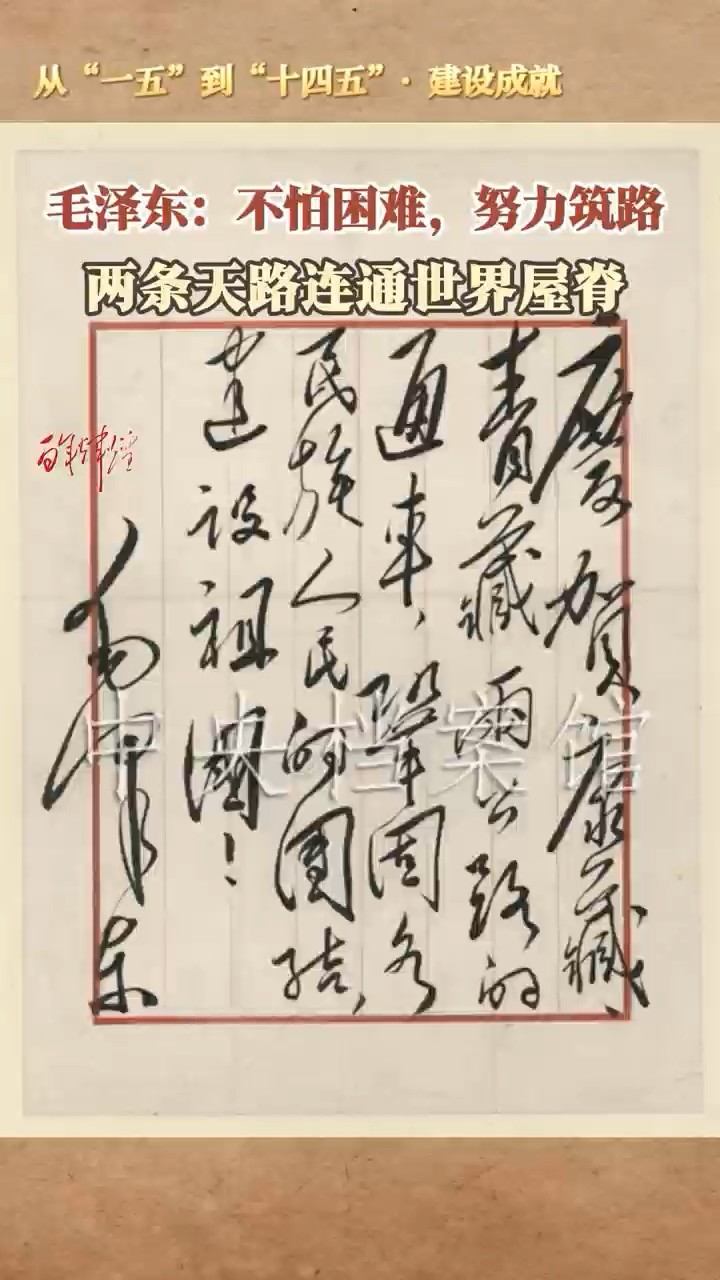 从“一五”到“十四五”·建设成就
毛泽东：不怕困难，努力筑路
两条天路连通世界屋脊
慶賀康藏
青藏兩公路的
通車，鞏固各
民族人民的團結，
建設祖國！
毛泽东
百年辉煌
中央档案馆